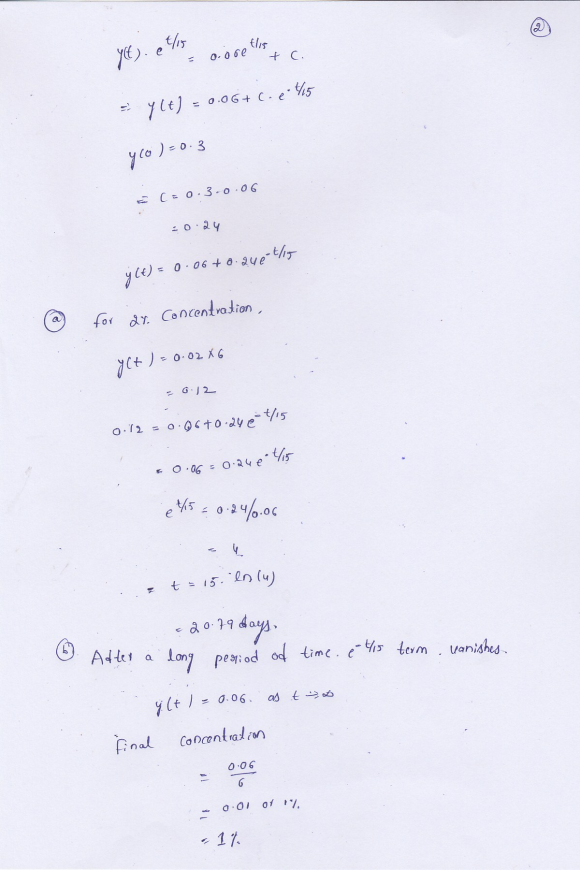 ②
y(t) . e^t/15 = 0.06e^t/15 + C.
=> y(t) = 0.06 + C. e^-t/15
y(0) = 0.3
= C = 0.3 - 0.06
= 0.24
y(t) = 0.06 + 0.24e^-t/15
ⓐ for 2% Concentration.
y(t) = 0.02 x 6
= 0.12
0.12 = 0.06 + 0.24 e^-t/15
= 0.06 = 0.24 e^-t/15
e^t/15 = 0.24/0.06
= 4
= t = 15. ln(4)
= 20.79 days.
ⓑ After a long period of time. e^-t/15 term . vanishes.
y(t) = 0.06. as t => ∞
Final Concentration
= 0.06/6
= 0.01 or 1%.
= 1%